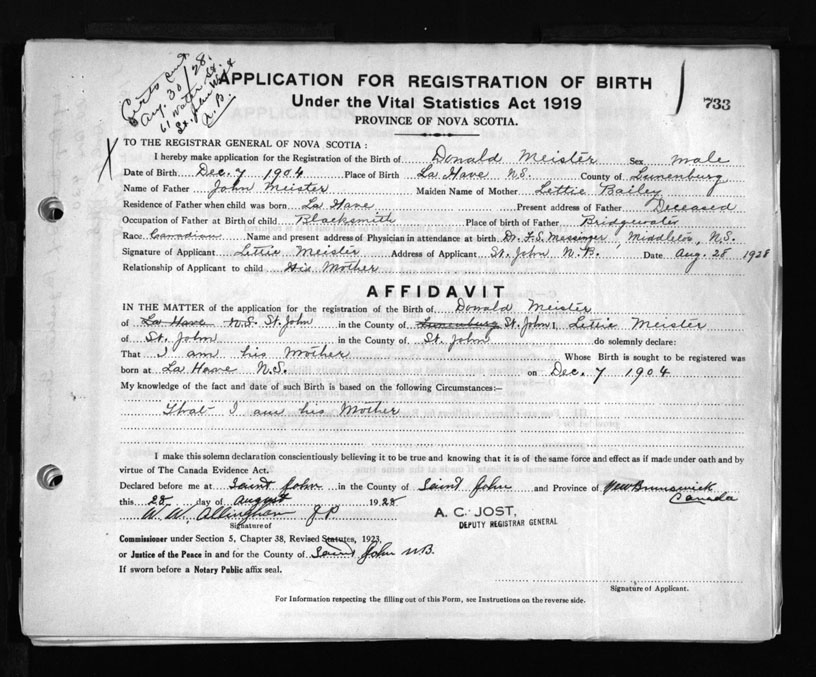 Certs sent
Aug. 30/28.
61 Water St.
St. John West
N.B.
APPLICATION FOR REGISTRATION OF BIRTH
Under the Vital Statistics Act 1919
PROVINCE OF NOVA SCOTIA.
733
TO THE REGISTRAR GENERAL OF NOVA SCOTIA :
I hereby make application for the Registration of the Birth of Donald Meister Sex male
Date of Birth Dec. 7 1904 Place of Birth La Have N.S. County of Lunenburg
Name of Father John Meister Maiden Name of Mother Lettie Bailey
Residence of Father when child was born La Have Present address of Father Deceased
Occupation of Father at Birth of child Blacksmith Place of birth of Father Bridgewater
Race Canadian Name and present address of Physician in attendance at birth Dr. F.S. Messinger, Middleton, N.S.
Signature of Applicant Lettie Meister Address of Applicant St. John N.B. Date Aug. 28 1928
Relationship of Applicant to child His Mother
AFFIDAVIT
IN THE MATTER of the application for the registration of the Birth of Donald Meister
of La Have N.S. St. John in the County of Lunenburg St. John I, Lettie Meister
of St. John in the County of St. John do solemnly declare:
That I am his Mother Whose Birth is sought to be registered was
born at La Have N.S. on Dec. 7 1904
My knowledge of the fact and date of such Birth is based on the following Circumstances:–
That I am his Mother
I make this solemn declaration conscientiously believing it to be true and knowing that it is of the same force and effect as if made under oath and by
virtue of The Canada Evidence Act.
Declared before me at Saint John in the County of Saint John and Province of New Brunswick
Canada
this 28 day of August 1928
W. W. Allingham J P
A. C. JOST,
DEPUTY REGISTRAR GENERAL
Signature of
Commissioner under Section 5, Chapter 38, Revised Statutes, 1923,
or Justice of the Peace in and for the County of Saint John N.B.
If sworn before a Notary Public affix seal.
Signature of Applicant.
For Information respecting the filling out of this Form, see Instructions on the reverse side.